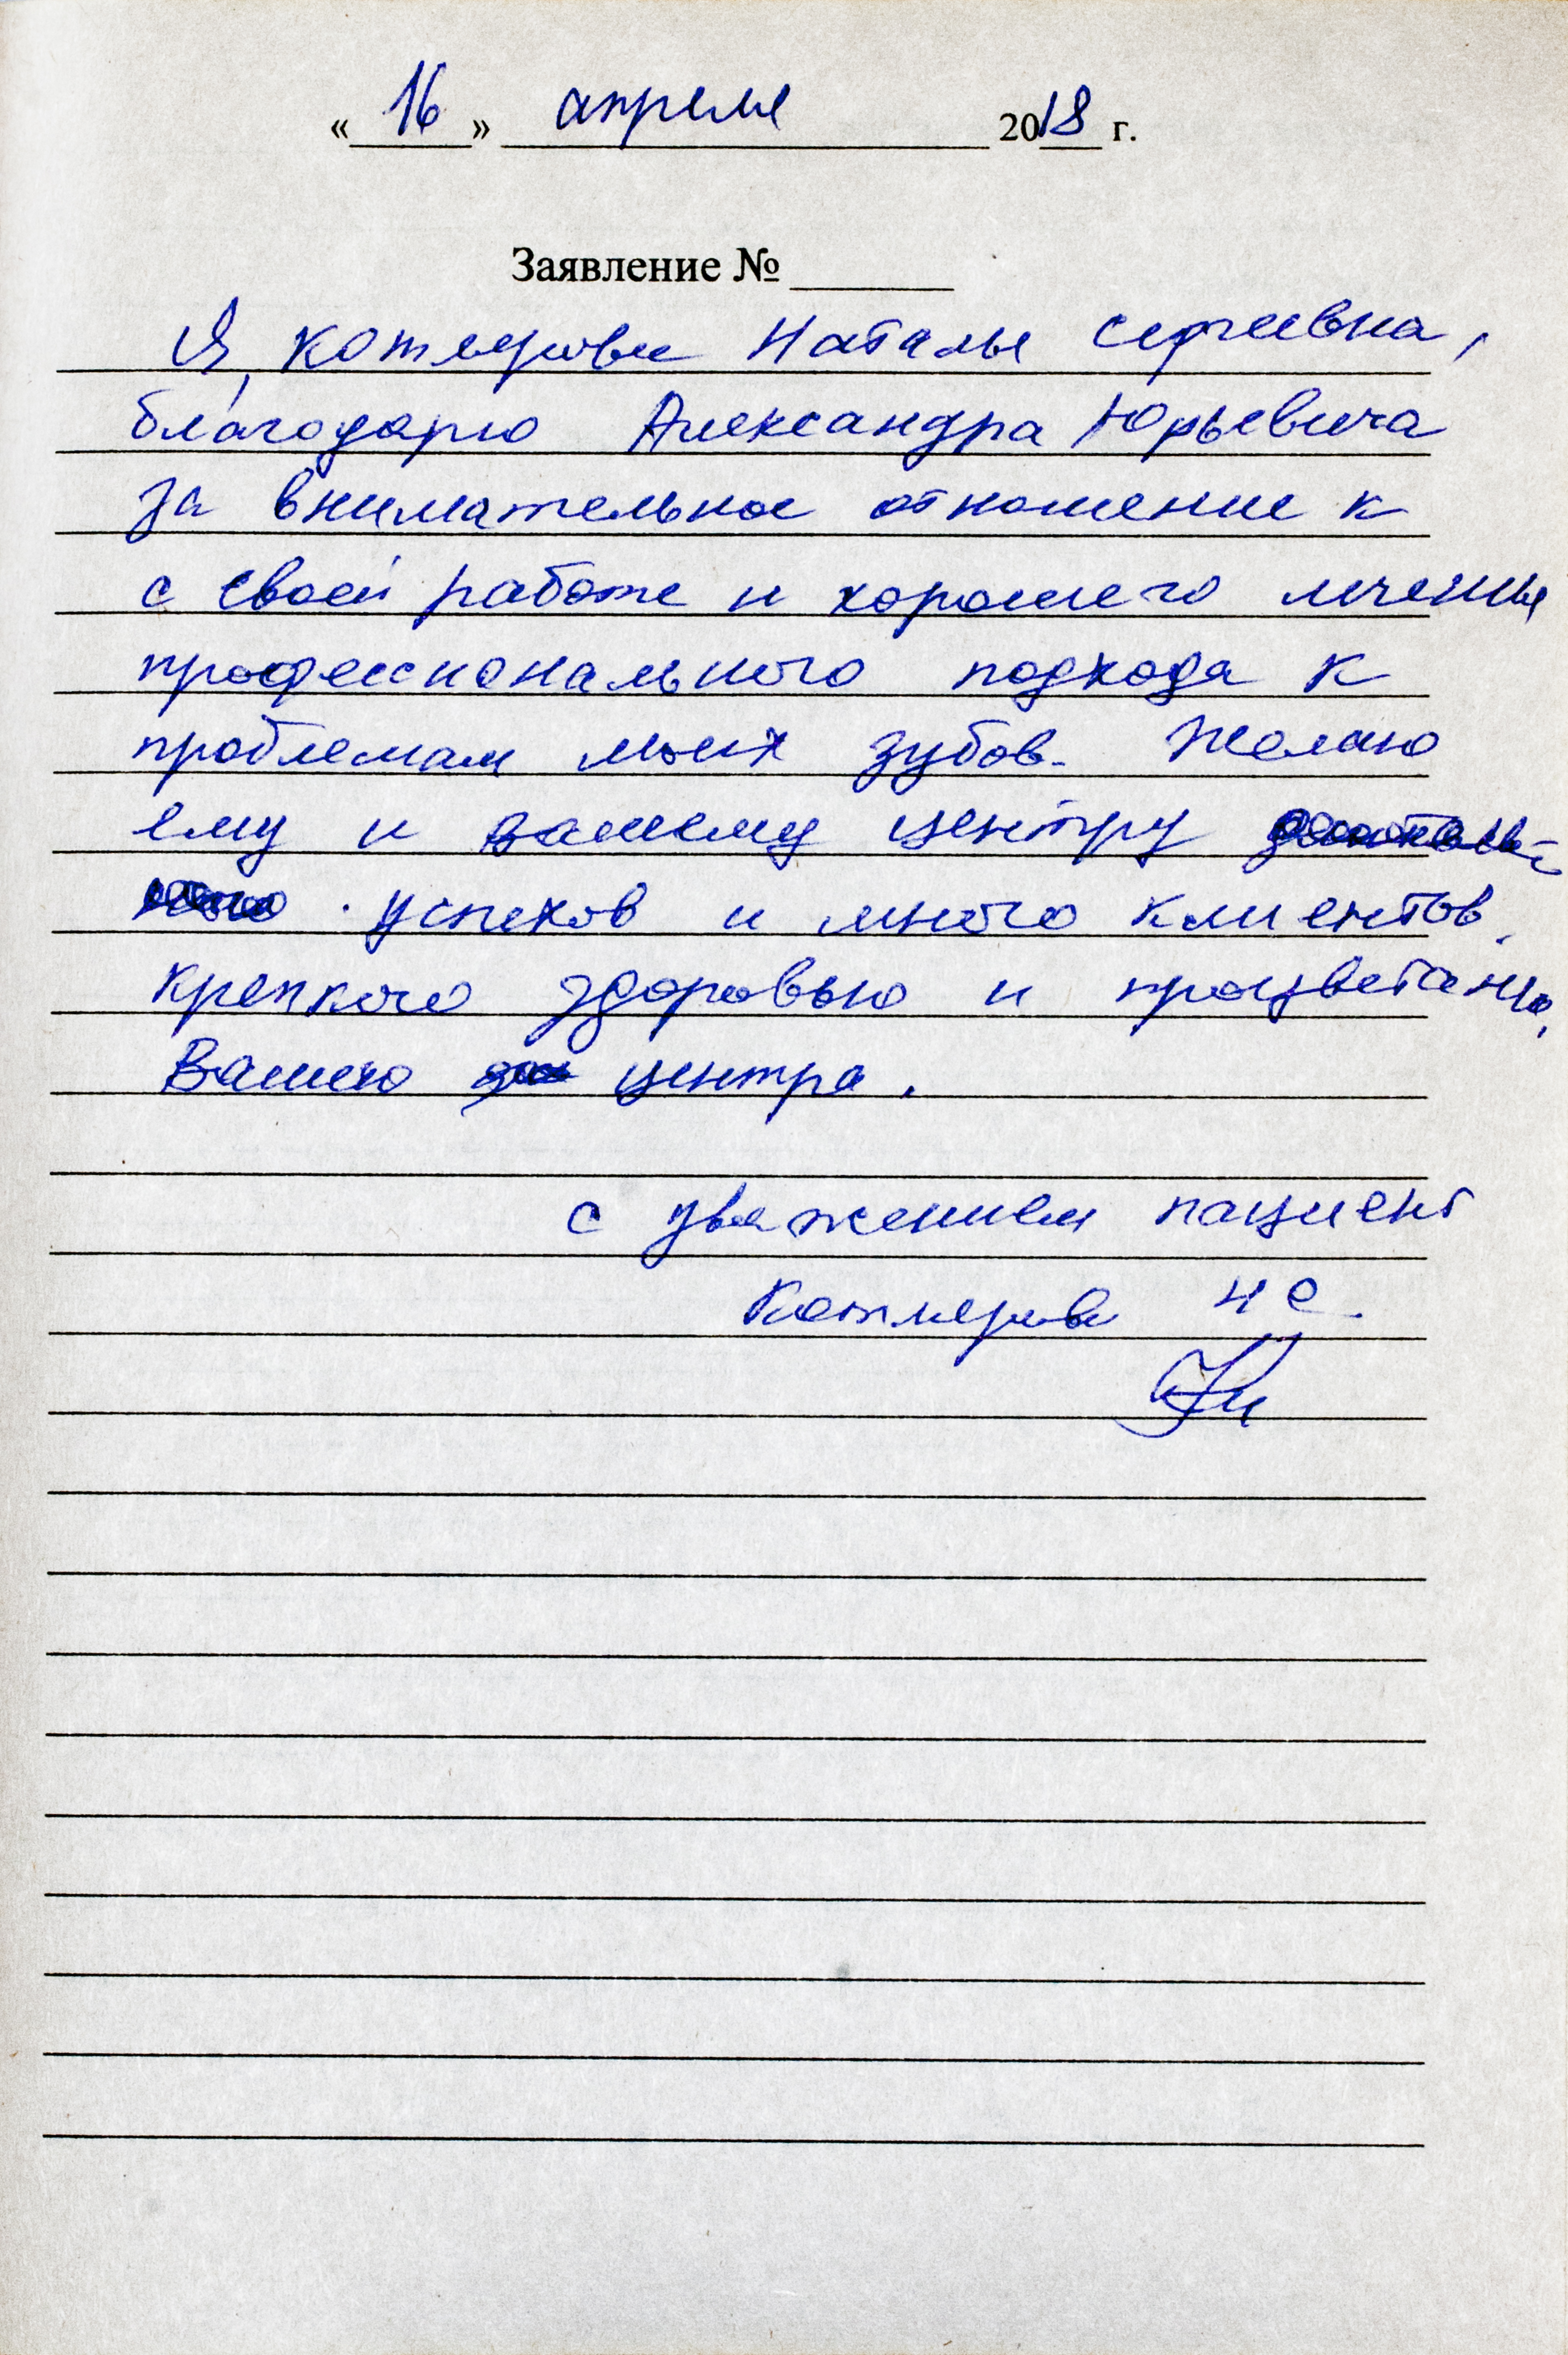 « 16 » апреля 2018 г.
Заявление №
Я, Котлерова Наталья Сергеевна,
благодарю Александра Юрьевича
за внимательное отношение к
с своей работе и хорошего лечения
профессионального подхода к
проблемам моих зубов. Желаю
ему и вашему центру
успехов и много клиентов,
крепкого здоровью и процветания,
Вашего центра.
с уважением пациент
Н С.